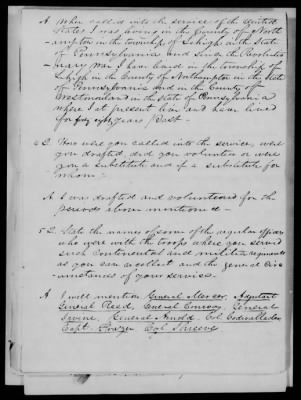 A When called into the service of the United
States I was living in the County of North
ampton in the township of Lehigh in the State
of Pennsylvania and since the Revolutio
nary War I have lived in the township of
Lehigh in the County of Northampton in the State
of Pennsylvania and in the County of
Westmoreland in the State of Pennsylvania
where I at present live and have lived
for forty eight years past –
How were you called into the service, were
you drafted did you volunteer or were
you a substitute and if a substitute for
whom
A I was drafted and volunteered for the
periods above mentioned –
5 Q. State the names of some of the regular officers
who were with the troops where you served
such continental and militia regiments
as you can recollect and the general cir
cumstances of your service.
A I will mention General Mercer, Adjutant
General Reed, General Conway, General
Irvine, General Arnold, Col. Cadwallader
Capt. Frazer Col Shreeve